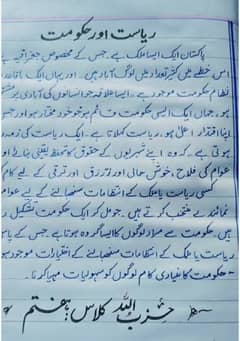 ریاست اور حکومت
پاکستان ایک ایسا ملک ہے، جس کے مخصوص جغرافیے
اس خطے میں کثیر تعداد میں لوگ آباد ہیں۔ اور یہاں ایک باقاعدہ
نظام حکومت موجود ہے۔ ایسا علاقہ جو انسانوں کی آبادی پر
ہو، جہاں ایک ایسی حکومت قائم ہو جو خود مختار ہو اور جس
اپنا اقتدار اعلیٰ ہو، ریاست کہلاتا ہے۔ ایک ریاست کی ذمہ
ہوتی ہے۔ کہ وہ اپنے شہریوں کے حقوق کا تحفظ یقینی بنائے اور
عوام کی فلاح، خوش حالی اور ترقی کے لیے کام
کسی ریاست یا ملک کے انتظامات سنبھالنے کے لیے عوام
نمائندے منتخب کرتے ہیں۔ جو مل کر ایک حکومت تشکیل
ہیں حکومت سے مراد لوگوں کا ایسا گروہ ہوتا ہے، جس کے پاس
ریاست یا ملک کے انتظامات سنبھالنے کے اختیارات موجود ہوں
۔ حکومت کا بنیادی کام لوگوں کو سہولیات مہیا کرنا۔
حزب اللہ کلاس: ہفتم